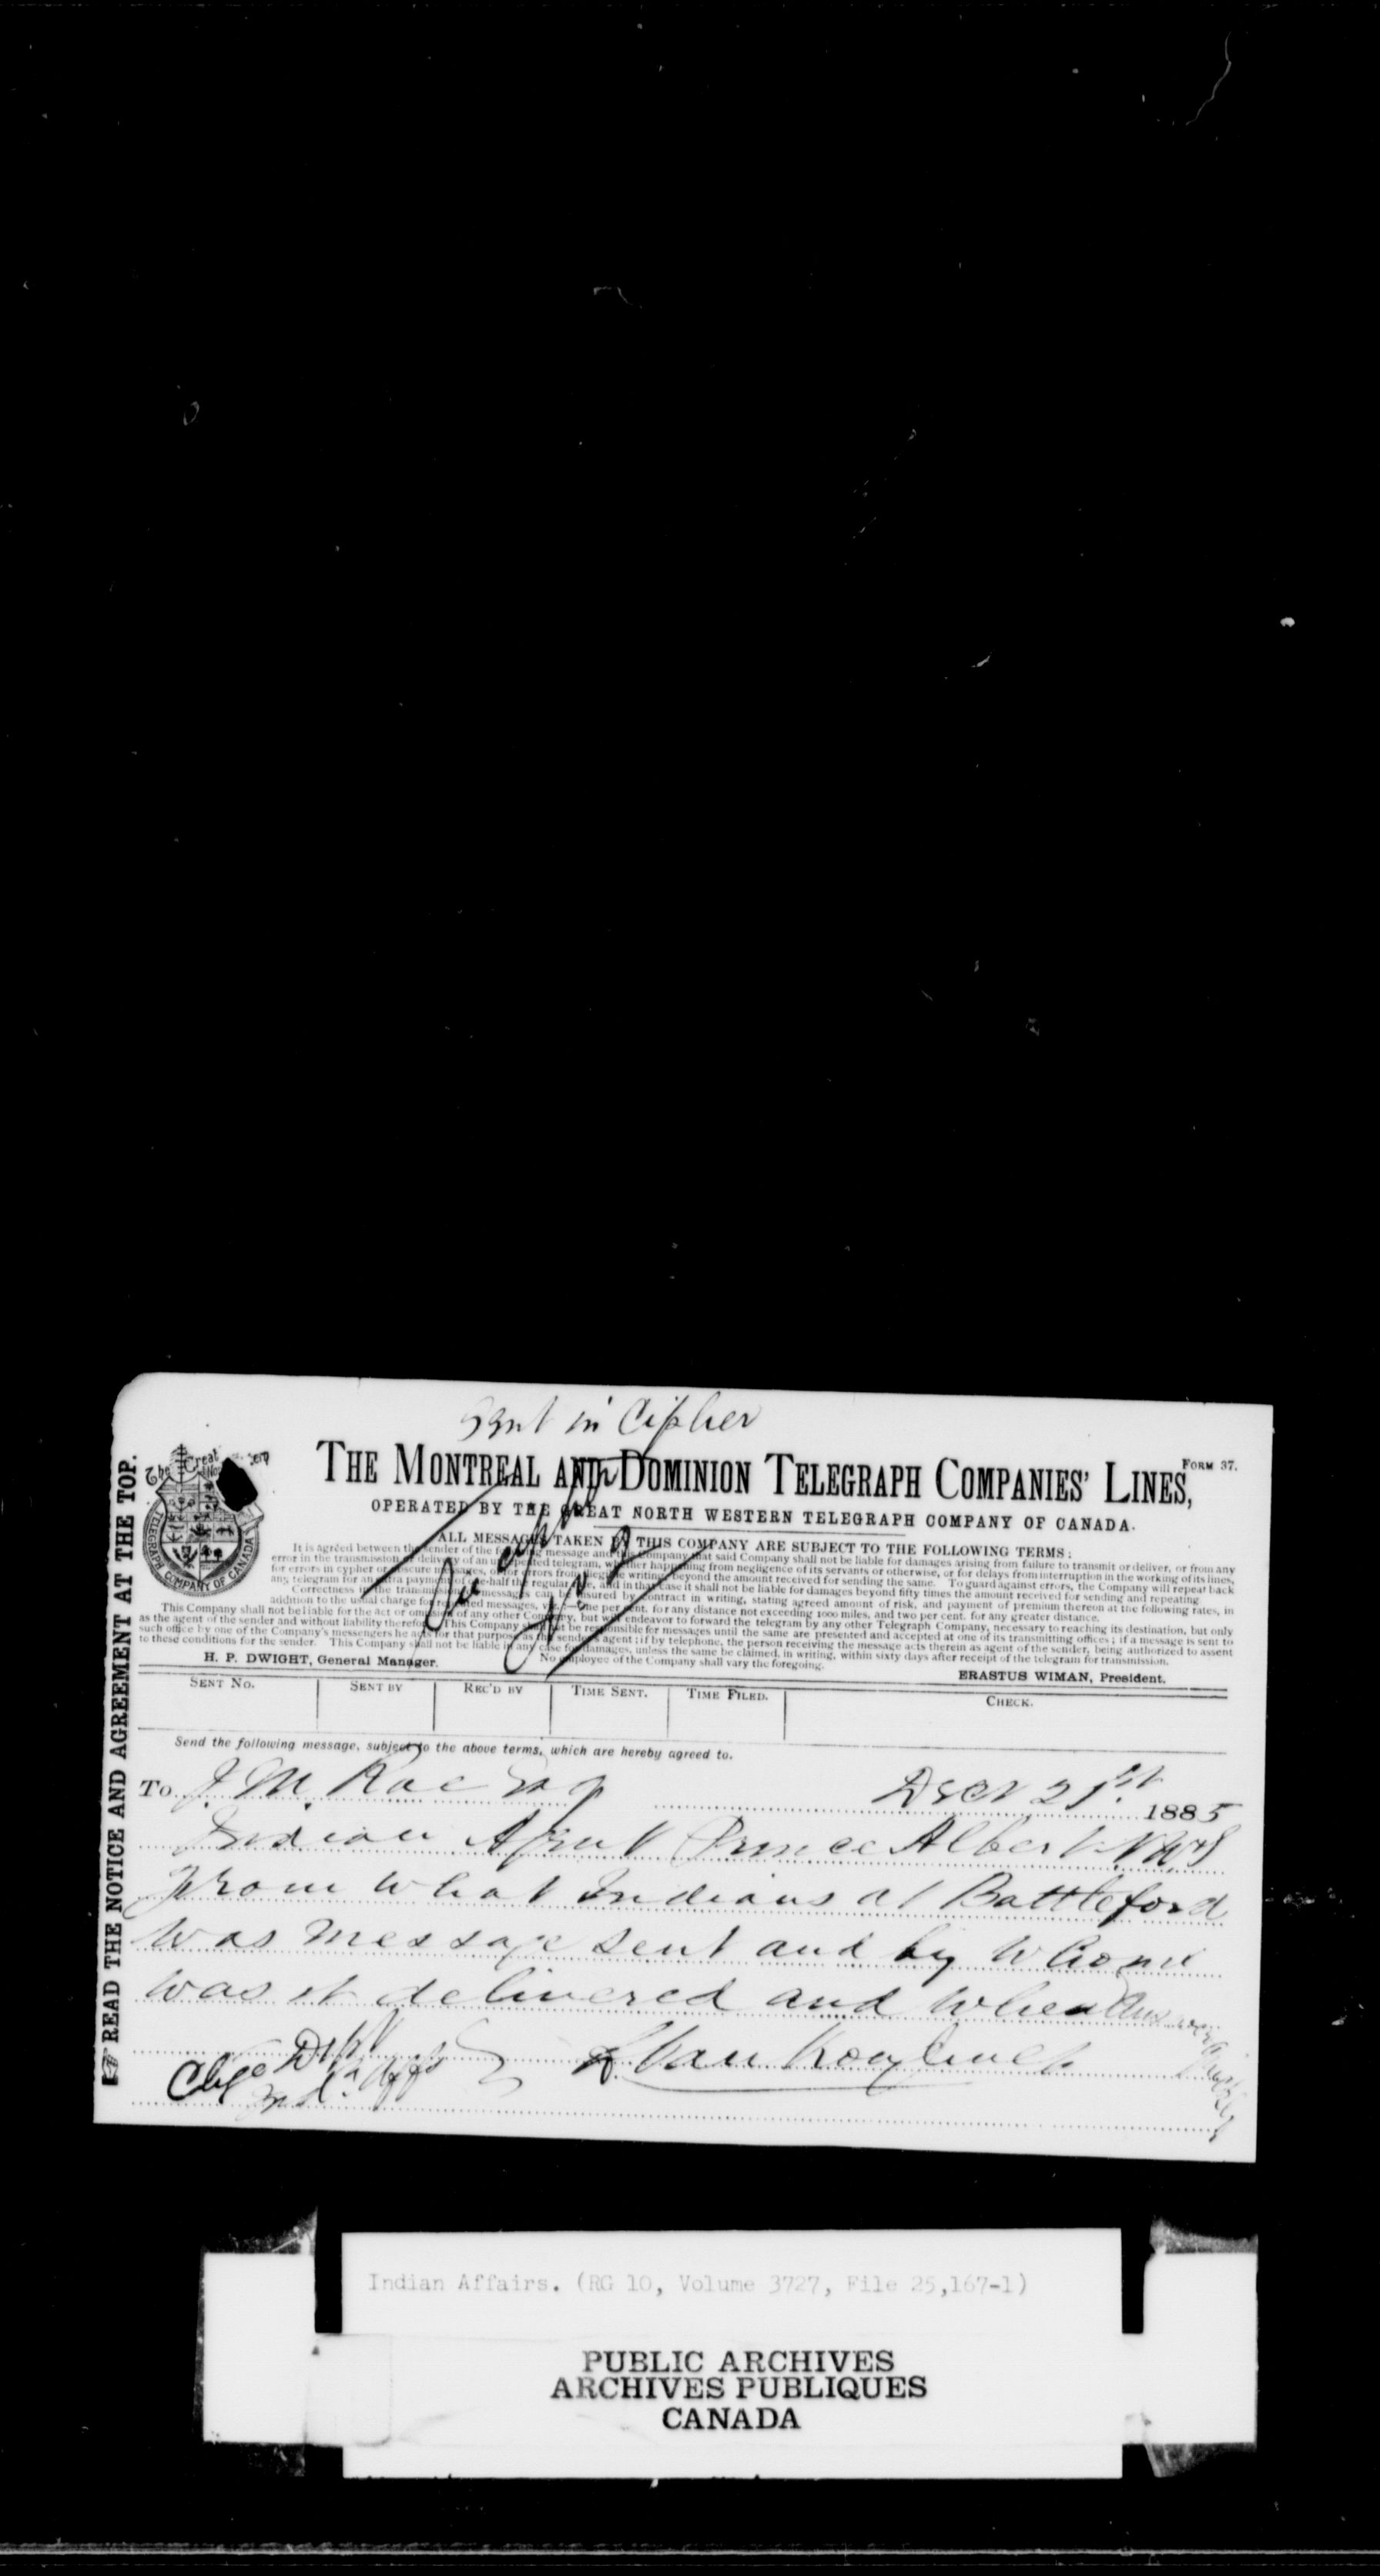 Sent in Cipher
FORM 37.
THE MONTREAL AND DOMINION TELEGRAPH COMPANIES' LINES,
OPERATED BY THE GREAT NORTH WESTERN TELEGRAPH COMPANY OF CANADA.
ALL MESSAGES TAKEN BY THIS COMPANY ARE SUBJECT TO THE FOLLOWING TERMS:
It is agreed between the sender of the following message and this Company that said Company shall not be liable for damages arising from failure to transmit or deliver, or from any
error in the transmission or delivery of an unrepeated telegram, whether happening from negligence of its servants or otherwise, or for delays from interruption in the working of its lines,
for errors in cypher or obscure messages, or for errors from illegible writing, beyond the amount received for sending the same. To guard against errors, the Company will repeat back
any telegram for an extra payment of one-half the regular rate, and in that case it shall not be liable for damages beyond fifty times the amount received for sending and repeating.
Correctness in the transmission of messages can be insured by contract in writing, stating agreed amount of risk, and payment of premium thereon at the following rates, in
addition to the usual charge for repeated messages, viz: one per cent. for any distance not exceeding 1000 miles, and two per cent. for any greater distance.
This Company shall not be liable for the act or omission of any other Company, but will endeavor to forward the telegram by any other Telegraph Company, necessary to reaching its destination, but only
as the agent of the sender and without liability therefor. This Company shall not be responsible for messages until the same are presented and accepted at one of its transmitting offices; if a message is sent to
such office by one of the Company's messengers he acts for that purpose as the sender's agent; if by telephone, the person receiving the message acts therein as agent of the sender, being authorized to assent
to these conditions for the sender. This Company shall not be liable in any case for damages, unless the same be claimed, in writing, within sixty days after receipt of the telegram for transmission.
No employee of the Company shall vary the foregoing.
H. P. DWIGHT, General Manager.
ERASTUS WIMAN, President.
SENT NO. SENT BY REC'D BY TIME SENT. TIME FILED. CHECK.
Send the following message, subject to the above terms, which are hereby agreed to.
To J. M. Rae Esq Decr 21st 1885
Indian Agent Prince Albert N.W.T
From what Indians at Battleford
was message sent and by whom
was it delivered and when Answer
L. Vankoughnet
Chge Dept
Ind. Affs
READ THE NOTICE AND AGREEMENT AT THE TOP.
TELEGRAPH COMPANY OF CANADA
Indian Affairs. (RG 10, Volume 3727, File 25,167-1)
PUBLIC ARCHIVES
ARCHIVES PUBLIQUES
CANADA